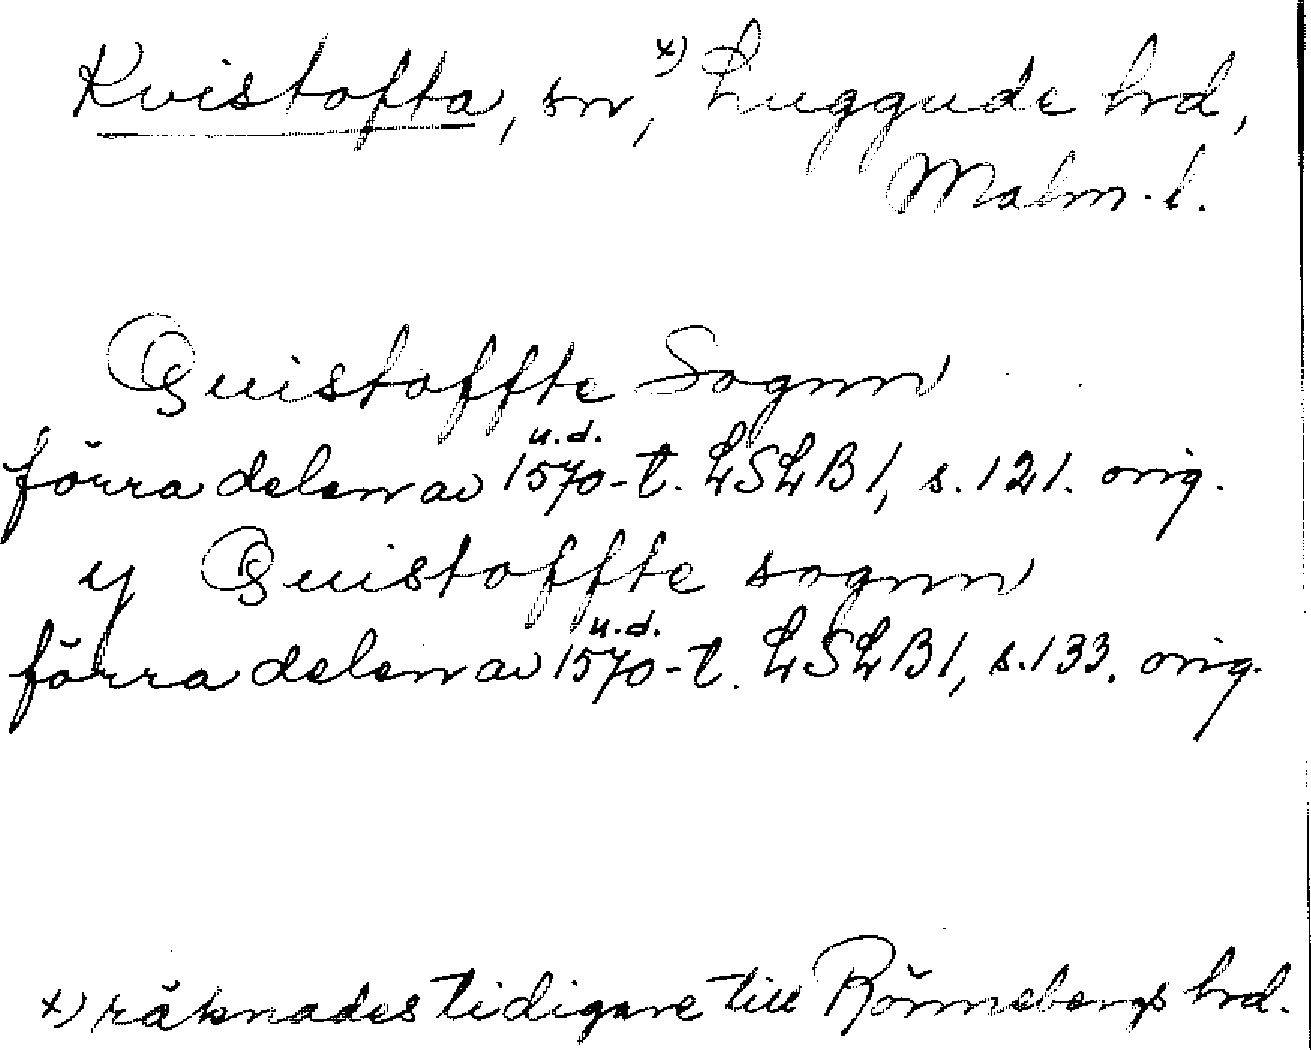 Kvistofta, sn, x) Luggude hrd,
Malm. l.
Quistoffte Sognn
u.d.
förra delen av 1570-t. LSLB 1, s. 121. orig.
y Quistoffte sognn
u.d.
förra delen av 1570-t. LSLB 1, s. 133. orig.
x) räknades tidigare till Rönnebergs hrd.